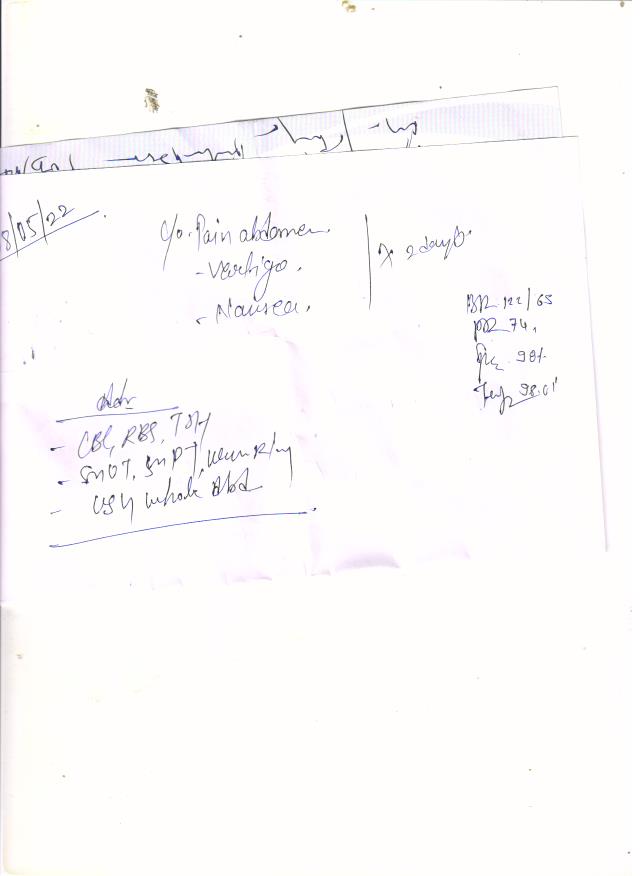 8/05/22
c/o. Pain abdomen.
- Vertigo.
- Nausea.
x 2 days.
BP 122/65
PR 74,
98%
Temp 98.01
Adv
- CBC, RBS, TSH
- SGOT, SGPT, Urine R/m
- USG whole Abd